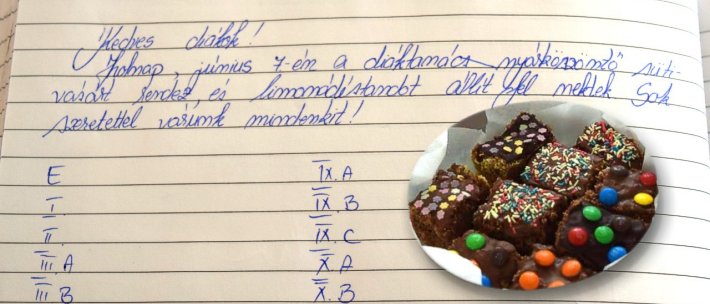 Kedves diákok!
Holnap, június 7-én a diáktanács nyárköszöntő süti-
vásárt rendez, és limonádéstandot állít fel nektek. Sok
szeretettel várunk mindenkit!
E IX. A
I. IX. B
II. IX. C
III. A X. A
III. B X. B